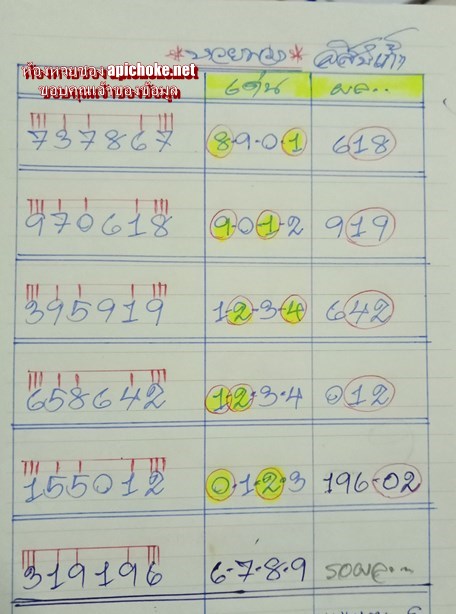 *หวยซอง*
ห้องหวยซอง apichoke.net
ขอบคุณเจ้าของข้อมูล
เด่น ผล..
737867 8-9-0-1 618
970618 9-0-1-2 919
395919 1-2-3-4 642
658642 1-2-3-4 012
155012 0-1-2-3 196-02
319196 6-7-8-9 รอผล...